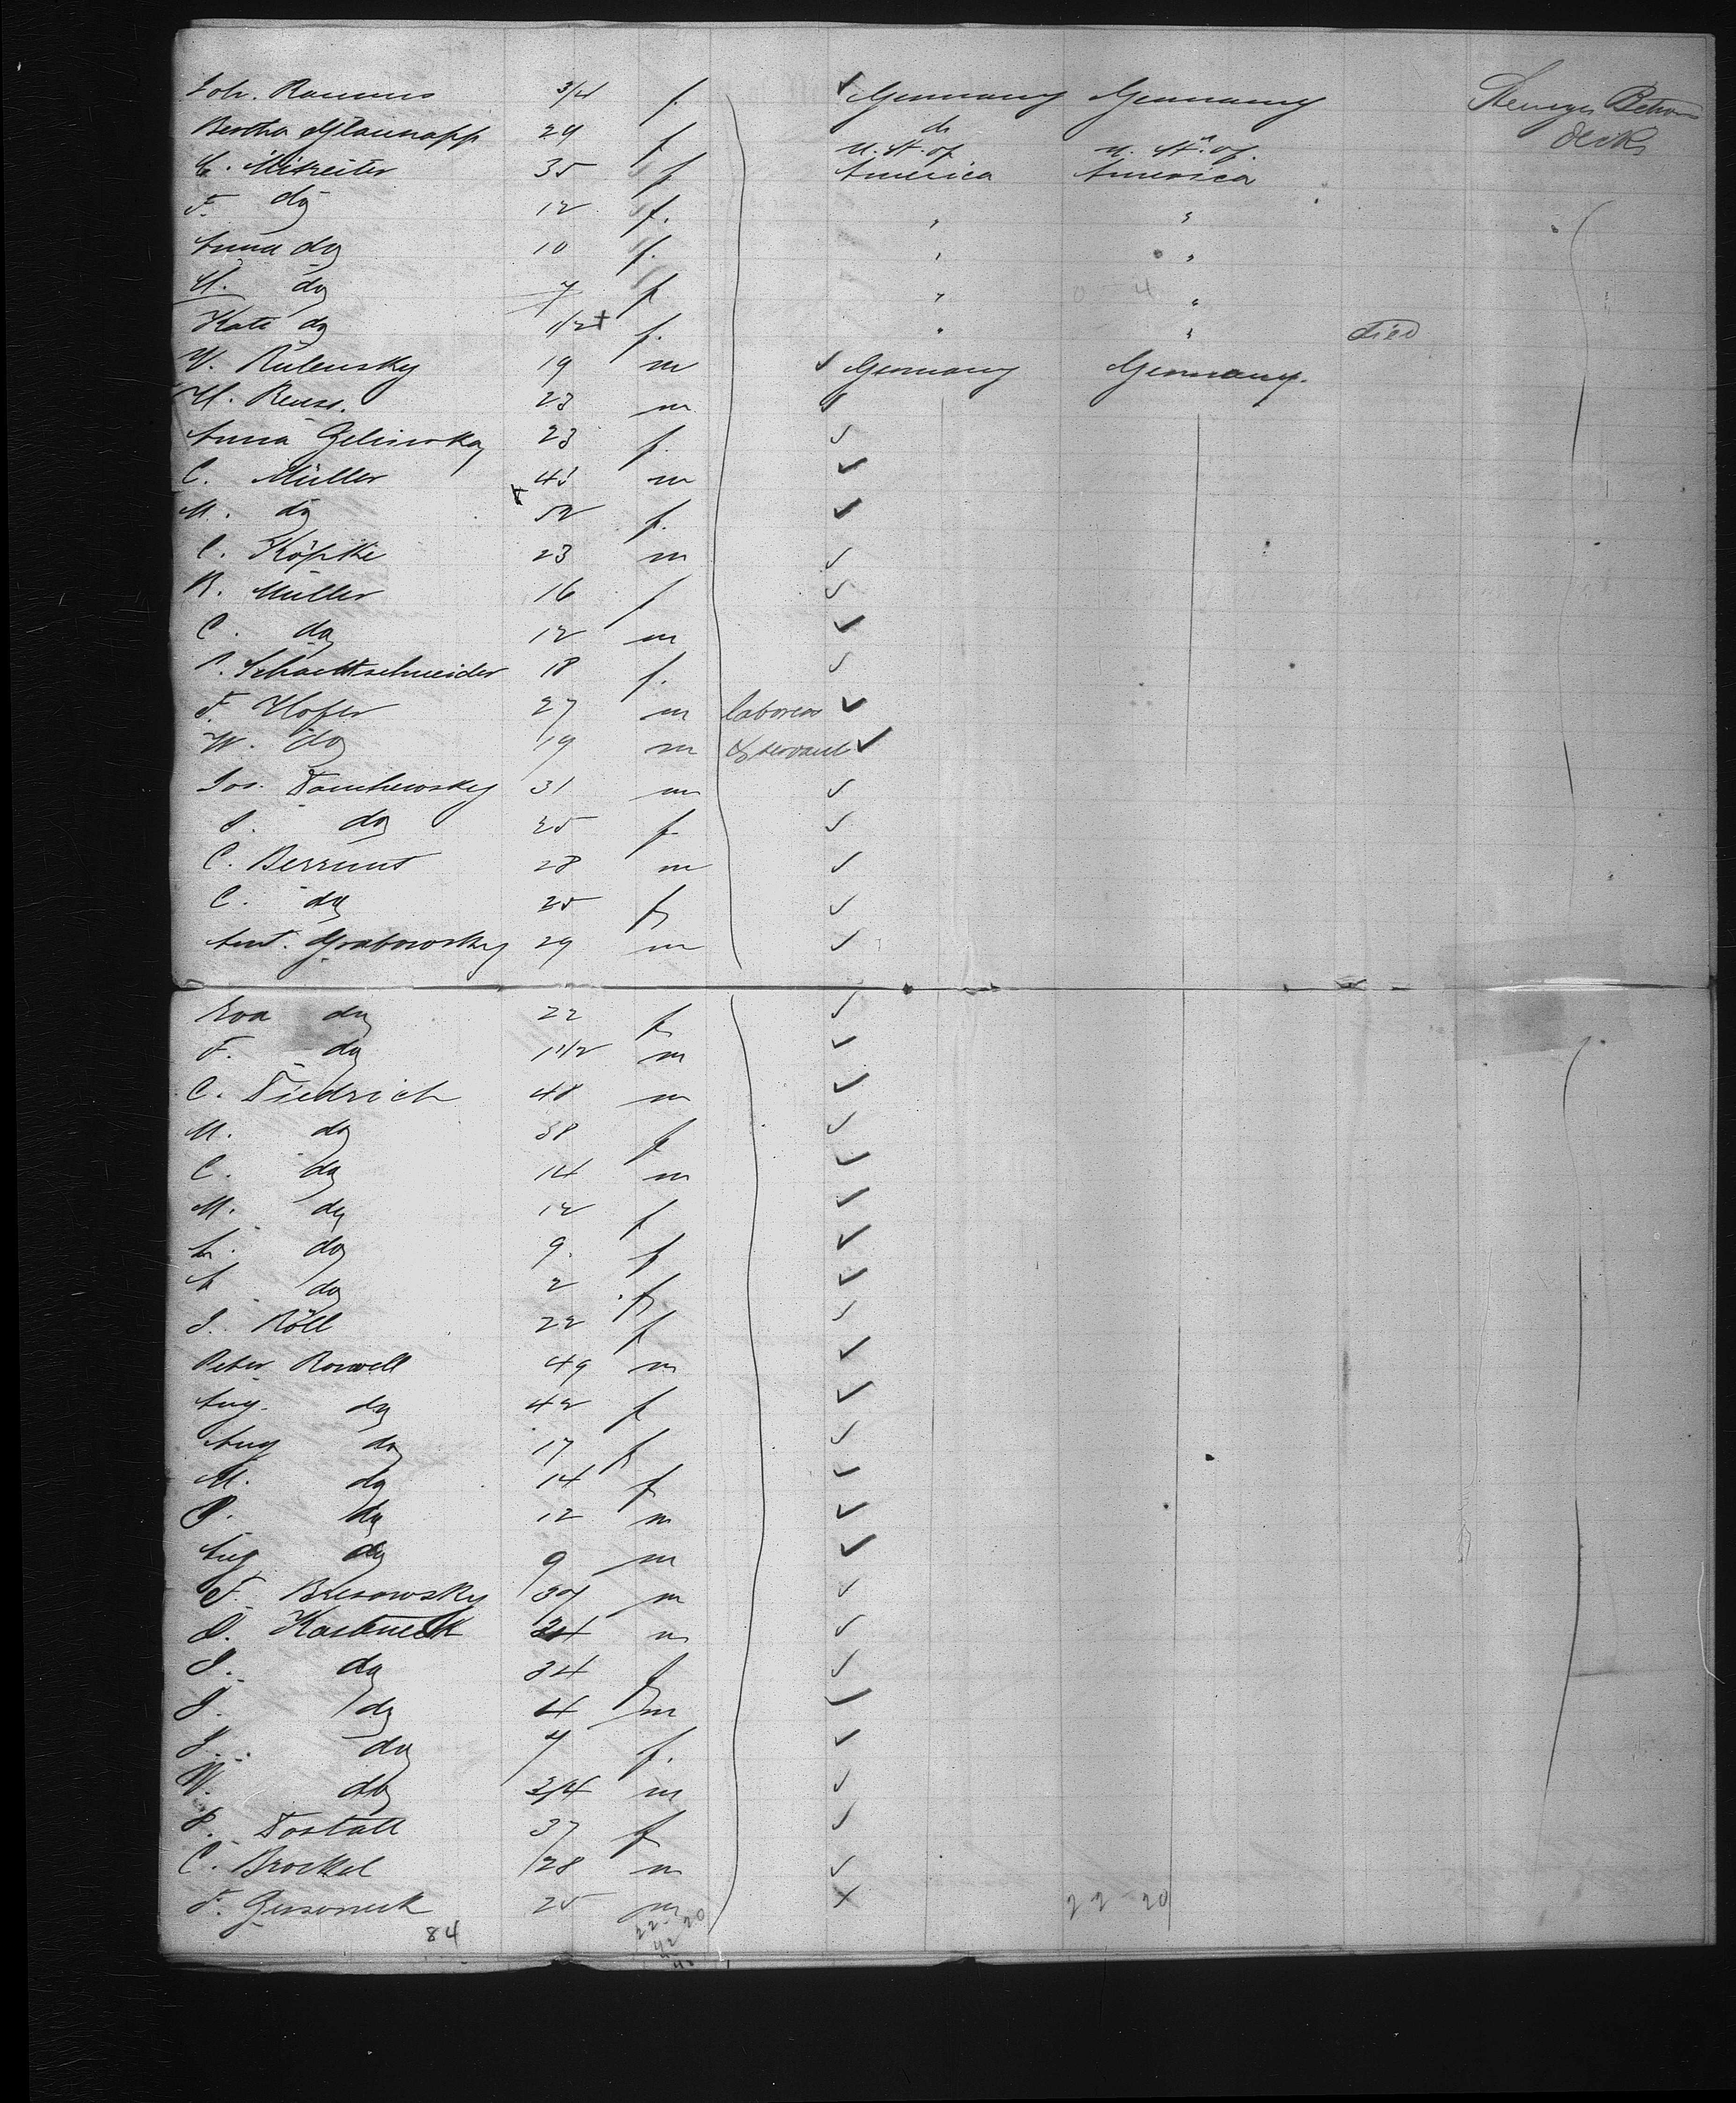 Joh. Rammus 3/4 f. ✓ Germany Germany Steerage Between
Bertha Glaunapp 29 f do " decks
C. Mitreiter 35 f U. St. of America U. St. of. America
F. do 12 f. " "
Anna do 10 f. " "
M. do 7 f " "
Kate do 1/2 + f. " " died
W. Rulensky 19 m ✓ Germany Germany.
H. Reuss. 23 m ✓
Anna Gelinska 23 f. ✓
C. Müller m ✓
M. do x 52 f. ✓
C. Köpke 23 m ✓
R. Müller 16 f ✓
C. do 12 m ✓
Schattschneider 18 f. ✓
F. Hofer 27 m laborers ✓
W. do 19 m & servant ✓
Jos. 31 m ✓
do 25 f ✓
C. 28 m ✓
C. do 25 f ✓
Ant. Grabowsky 29 m ✓
Eva do 22 f ✓
F. do 1 1/2 m ✓
C. Tiedrich 48 m ✓
M. do 38 f ✓
C. do 14 m ✓
M. do 12 f ✓
L. do 9. f ✓
A. do 2 f ✓
J. Röll 22 f ✓
Peter Rowell 49 m ✓
Aug. do 42 f ✓
Aug do 17 f ✓
M. do 14 f ✓
P. do 12 m ✓
Aug do 9 m ✓
F. Bresowsky 37 m ✓
m ✓
J. do 34 f ✓
J. do 4 m ✓
J. do 7 f. ✓
W. do 3/4 m ✓
P. Tostatt 37 f ✓
C. Brockel 28 m ✓
F. 25 m X 22 20
84 22 20
42